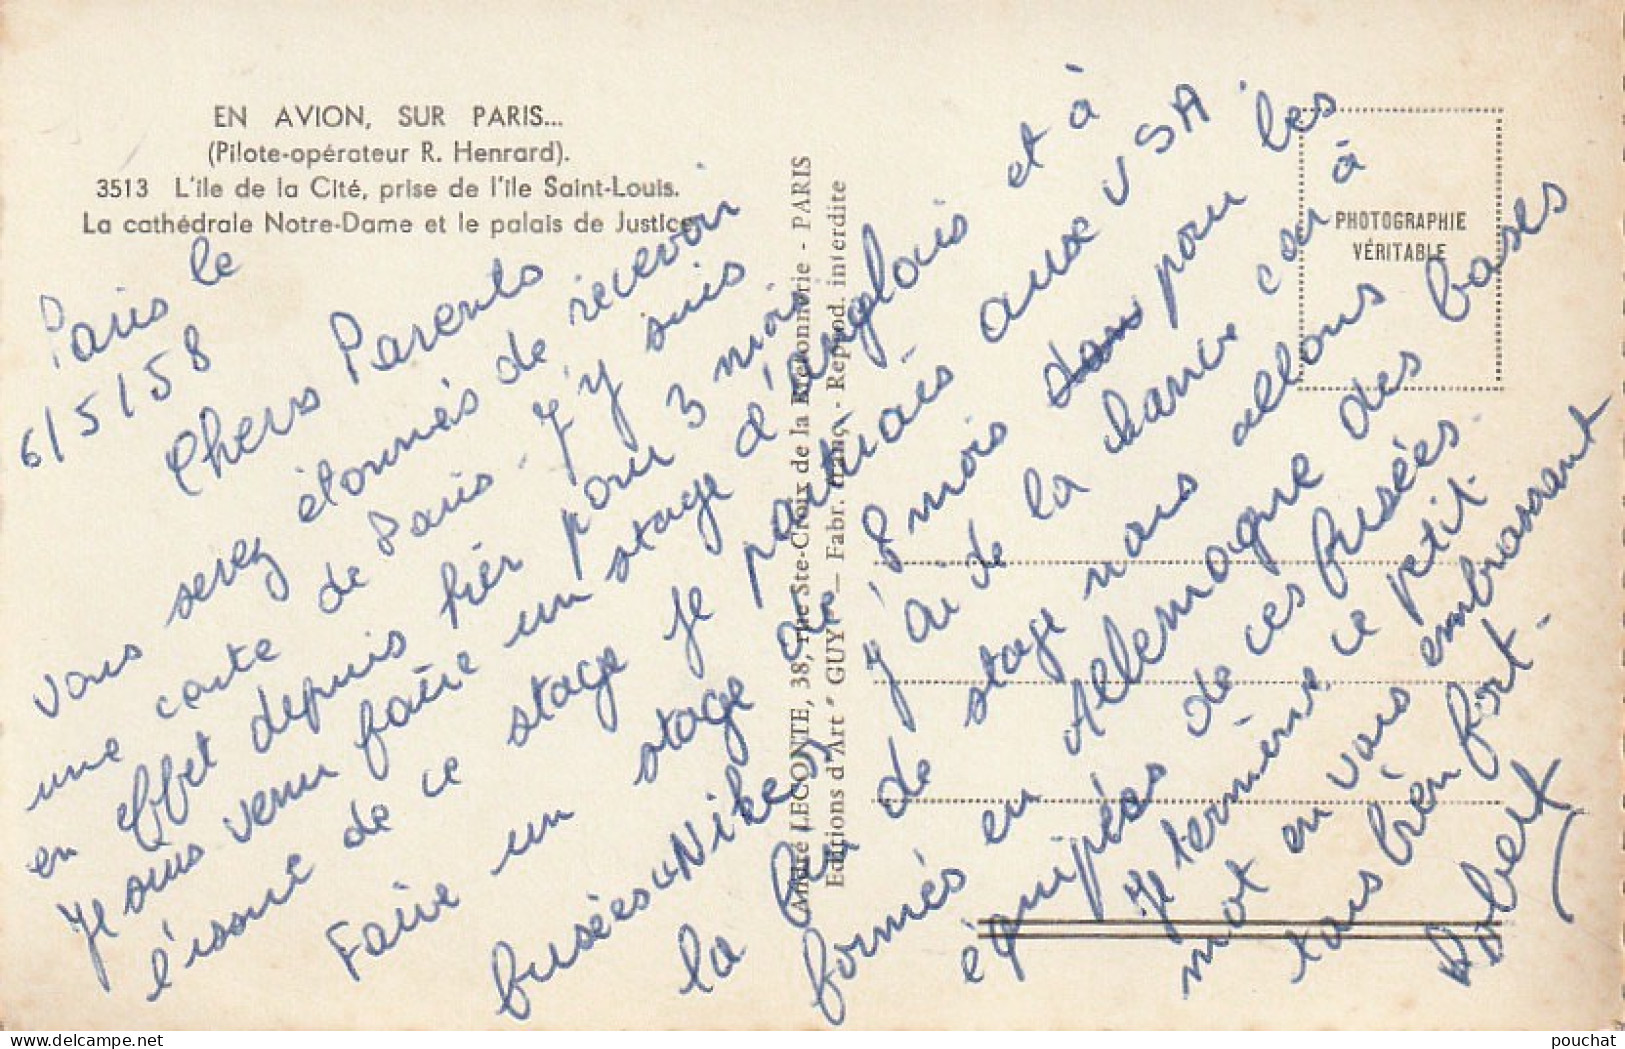 EN AVION, SUR PARIS...
(Pilote-opérateur R. Henrard).
3513 L'île de la Cité, prise de l'île Saint-Louis.
La cathédrale Notre-Dame et le palais de Justice.
Paris le
6/5/58
Chers Parents
vous serez étonnés de recevoir
une carte de Paris. J'y suis
en effet depuis hier pour 3 mois
Je suis venu faire un stage d'anglais et à
l'issue de ce stage je partirais aux USA.
Faire un stage de 8 mois dans pour les
fusées "Nike". J'ai de la chance car à
la fin de stage nous allons à
formés en Allemagne des bases
équipées de ces fusées.
Je termine ce petit
mot en vous embrassant
tous bien fort.
Robert
André LECONTE, 38, rue Ste-Croix de la Bretonnerie - PARIS
Editions d'Art "GUY" — Fabr. franç. - Reprod. interdite
PHOTOGRAPHIE
VÉRITABLE
pouchat
delcampe.net